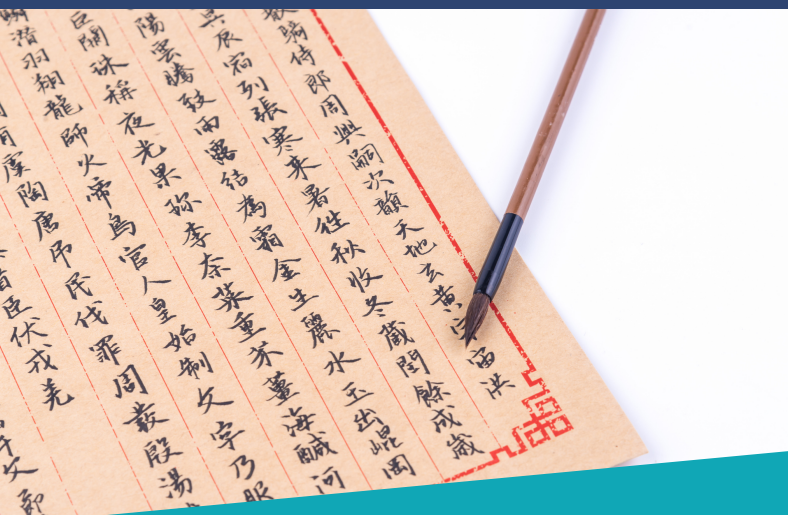 騎侍郎周興嗣次韻天地玄黃宇宙洪
辰宿列張寒来暑往秋收冬蔵閏餘成歲
陽雲騰致雨露結為霜金生麗水玉出崐岡
巨闕珠稱夜光果珍李柰菜重芥薑海鹹河
鱗潛羽翔龍師火帝鳥官人皇始制文字乃服
有虞陶唐吊民伐罪周發殷湯
首臣伏戎羌